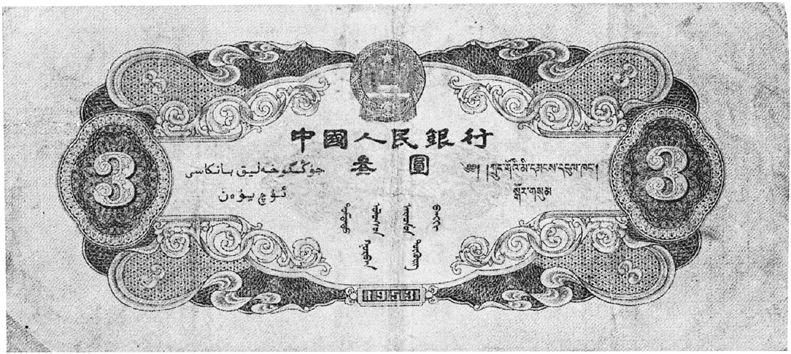 3
中國人民銀行
叁圓
جۇڭگو خەلىق بانكاسى
ئۈچ يۈەن
༄༅། །ཀྲུང་གོའི་མི་དམངས་དངུལ་ཁང་།
སྒོར་གསུམ
3
3
3
3
3
1953